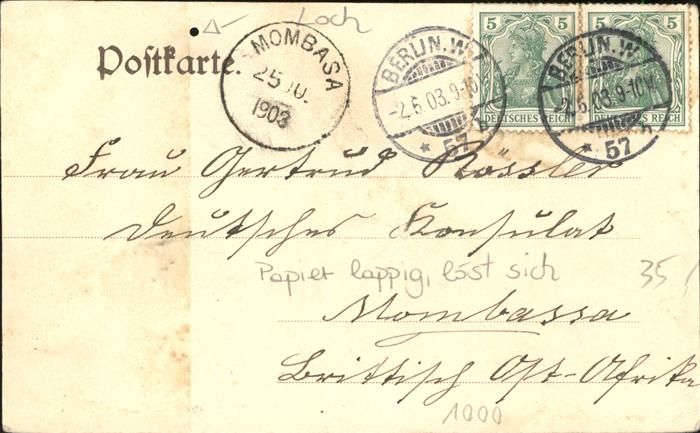 Loch
Postkarte.
MOMBASA
25 JU.
1903
BERLIN.W
-2.6.03.9-10V.
* 57
BERLIN.W
-2.6.03.9-10V.
* 57
5 5
DEUTSCHES REICH
5 5
DEUTSCHES REICH
Frau Gertrud Rössler
Deutsches Konsulat
Papier lappig, löst sich
35
Mombassa
Brittisch Ost-Afrika
1000